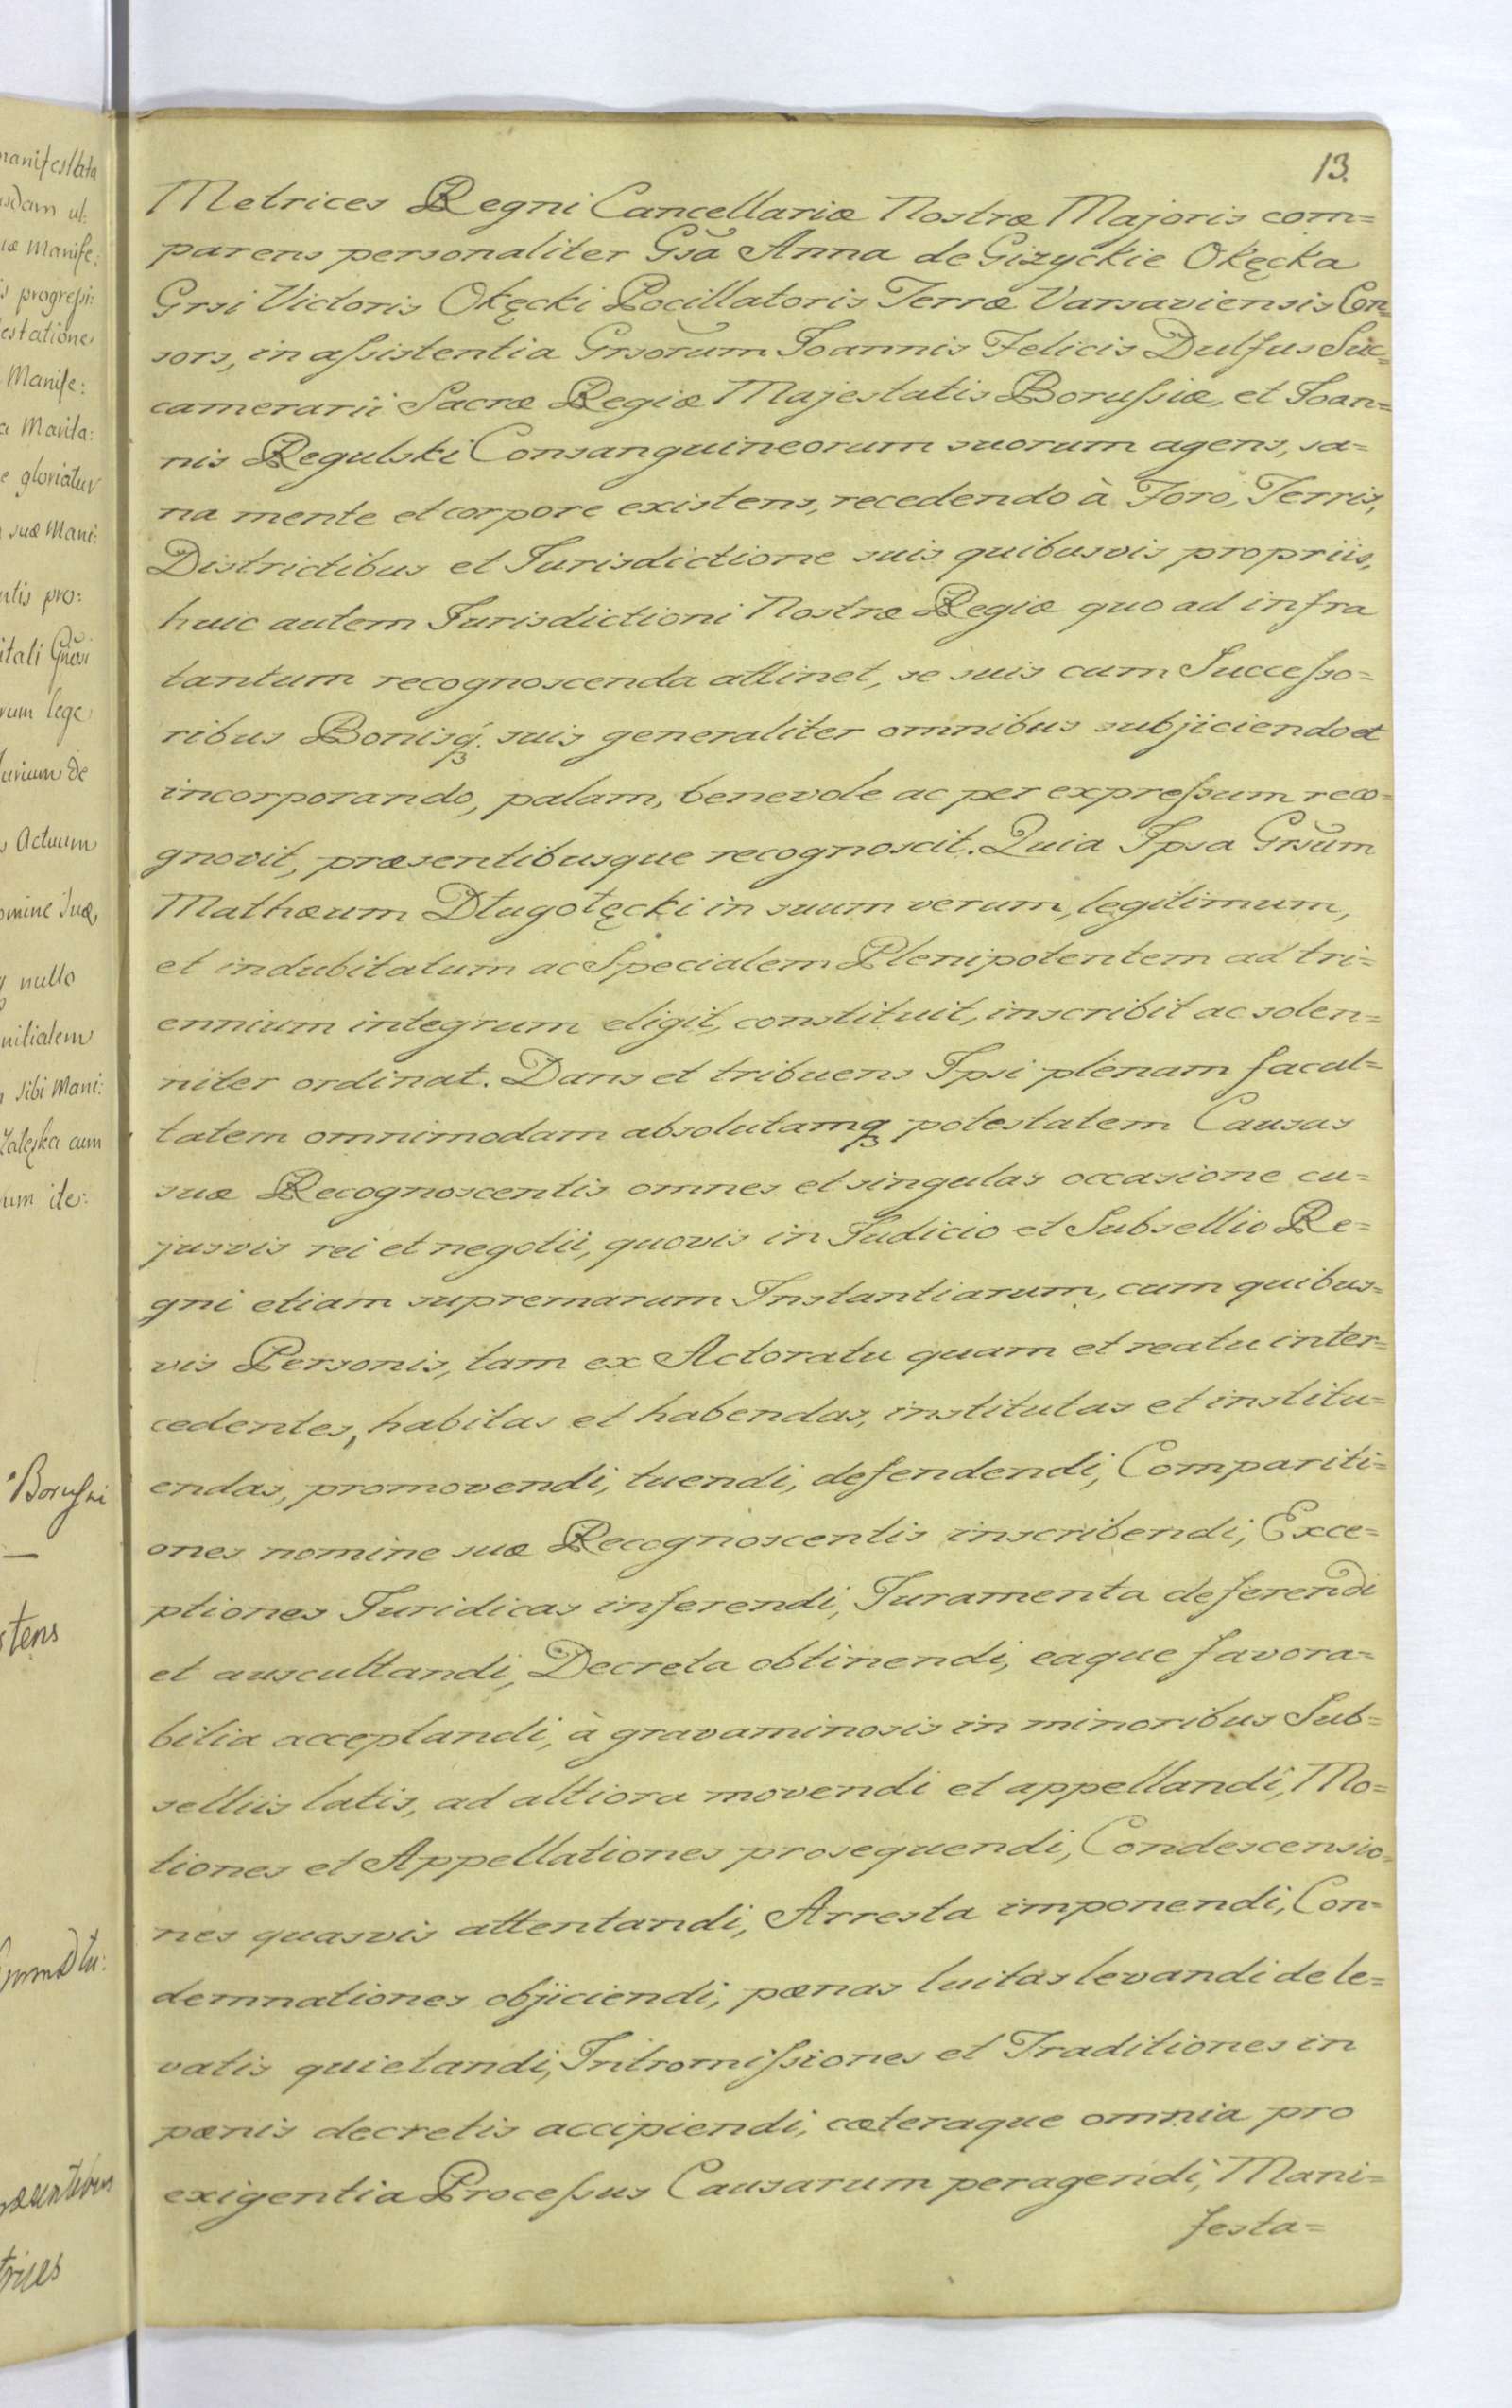 13.
Metrices Regni Cancellariæ Nostræ Majoris com=
parens personaliter Gsã Anna de Gizyckie Okęcka
Grsi Victoris Okęcki Pocillatoris Terræ Varsaviensis Con=
sors, in aſsistentia Grsõrum Joannis Felicis Dulfus Suc=
camerarii Sacræ Regiæ Majestatis Boruſsiæ, et Joan=
nis Regulski Consanguineorum suorum agens, sa=
na mente et corpore existens, recedendo à Foro, Terris,
Districtibus et Jurisdictione suis quibusvis propriis,
huic autem Jurisdictioni Nostræ Regiæ quo ad infra
tantum recognoscenda attinet, se suis cum Succeſso=
ribus Bonisq́ꝫ suis generaliter omnibus subjiciendo et
incorporando, palam, benevole ac per expreſsum reco=
gnovit, præsentibusque recognoscit. Quia Ipsa Grsũm
Mathæum Długołęcki in suum verum, legitimum,
et indubitatum ac Specialem Plenipotentem ad tri=
ennium integrum eligit, constituit, inscribit ac solen=
niter ordinat. Dans et tribuens Ipsi plenam facul=
tatem omnimodam absolutamqꝫ potestatem Causas
suæ Recognoscentis omnes et singulas occasione cu=
jusvis rei et negotii, quovis in Judicio et Subsellio Re=
gni etiam supremarum Instantiarum, cum quibus=
vis Personis, tam ex Actoratu quam et reatu inter=
cedentes, habitas et habendas, institutas et institu=
endas, promovendi, tuendi, defendendi, Compariti=
ones nomine suæ Recognoscentis inscribendi, Exce=
ptiones Juridicas inferendi, Juramenta deferendi
et auscultandi, Decreta obtinendi, eaque favora=
bilia acceptandi, à gravaminosis in minoribus Sub=
selliis latis, ad altiora movendi et appellandi, Mo=
tiones et Appellationes prosequendi, Condescensio=
nes quasvis attentandi, Arresta imponendi, Con=
demnationes objiciendi, pœnas luitas levandi de le=
vatis quietandi, Intromiſsiones et Traditiones in
pœnis decretis accipiendi, cæteraque omnia pro
exigentia Proceſsus Causarum peragendi, Mani=
festa=